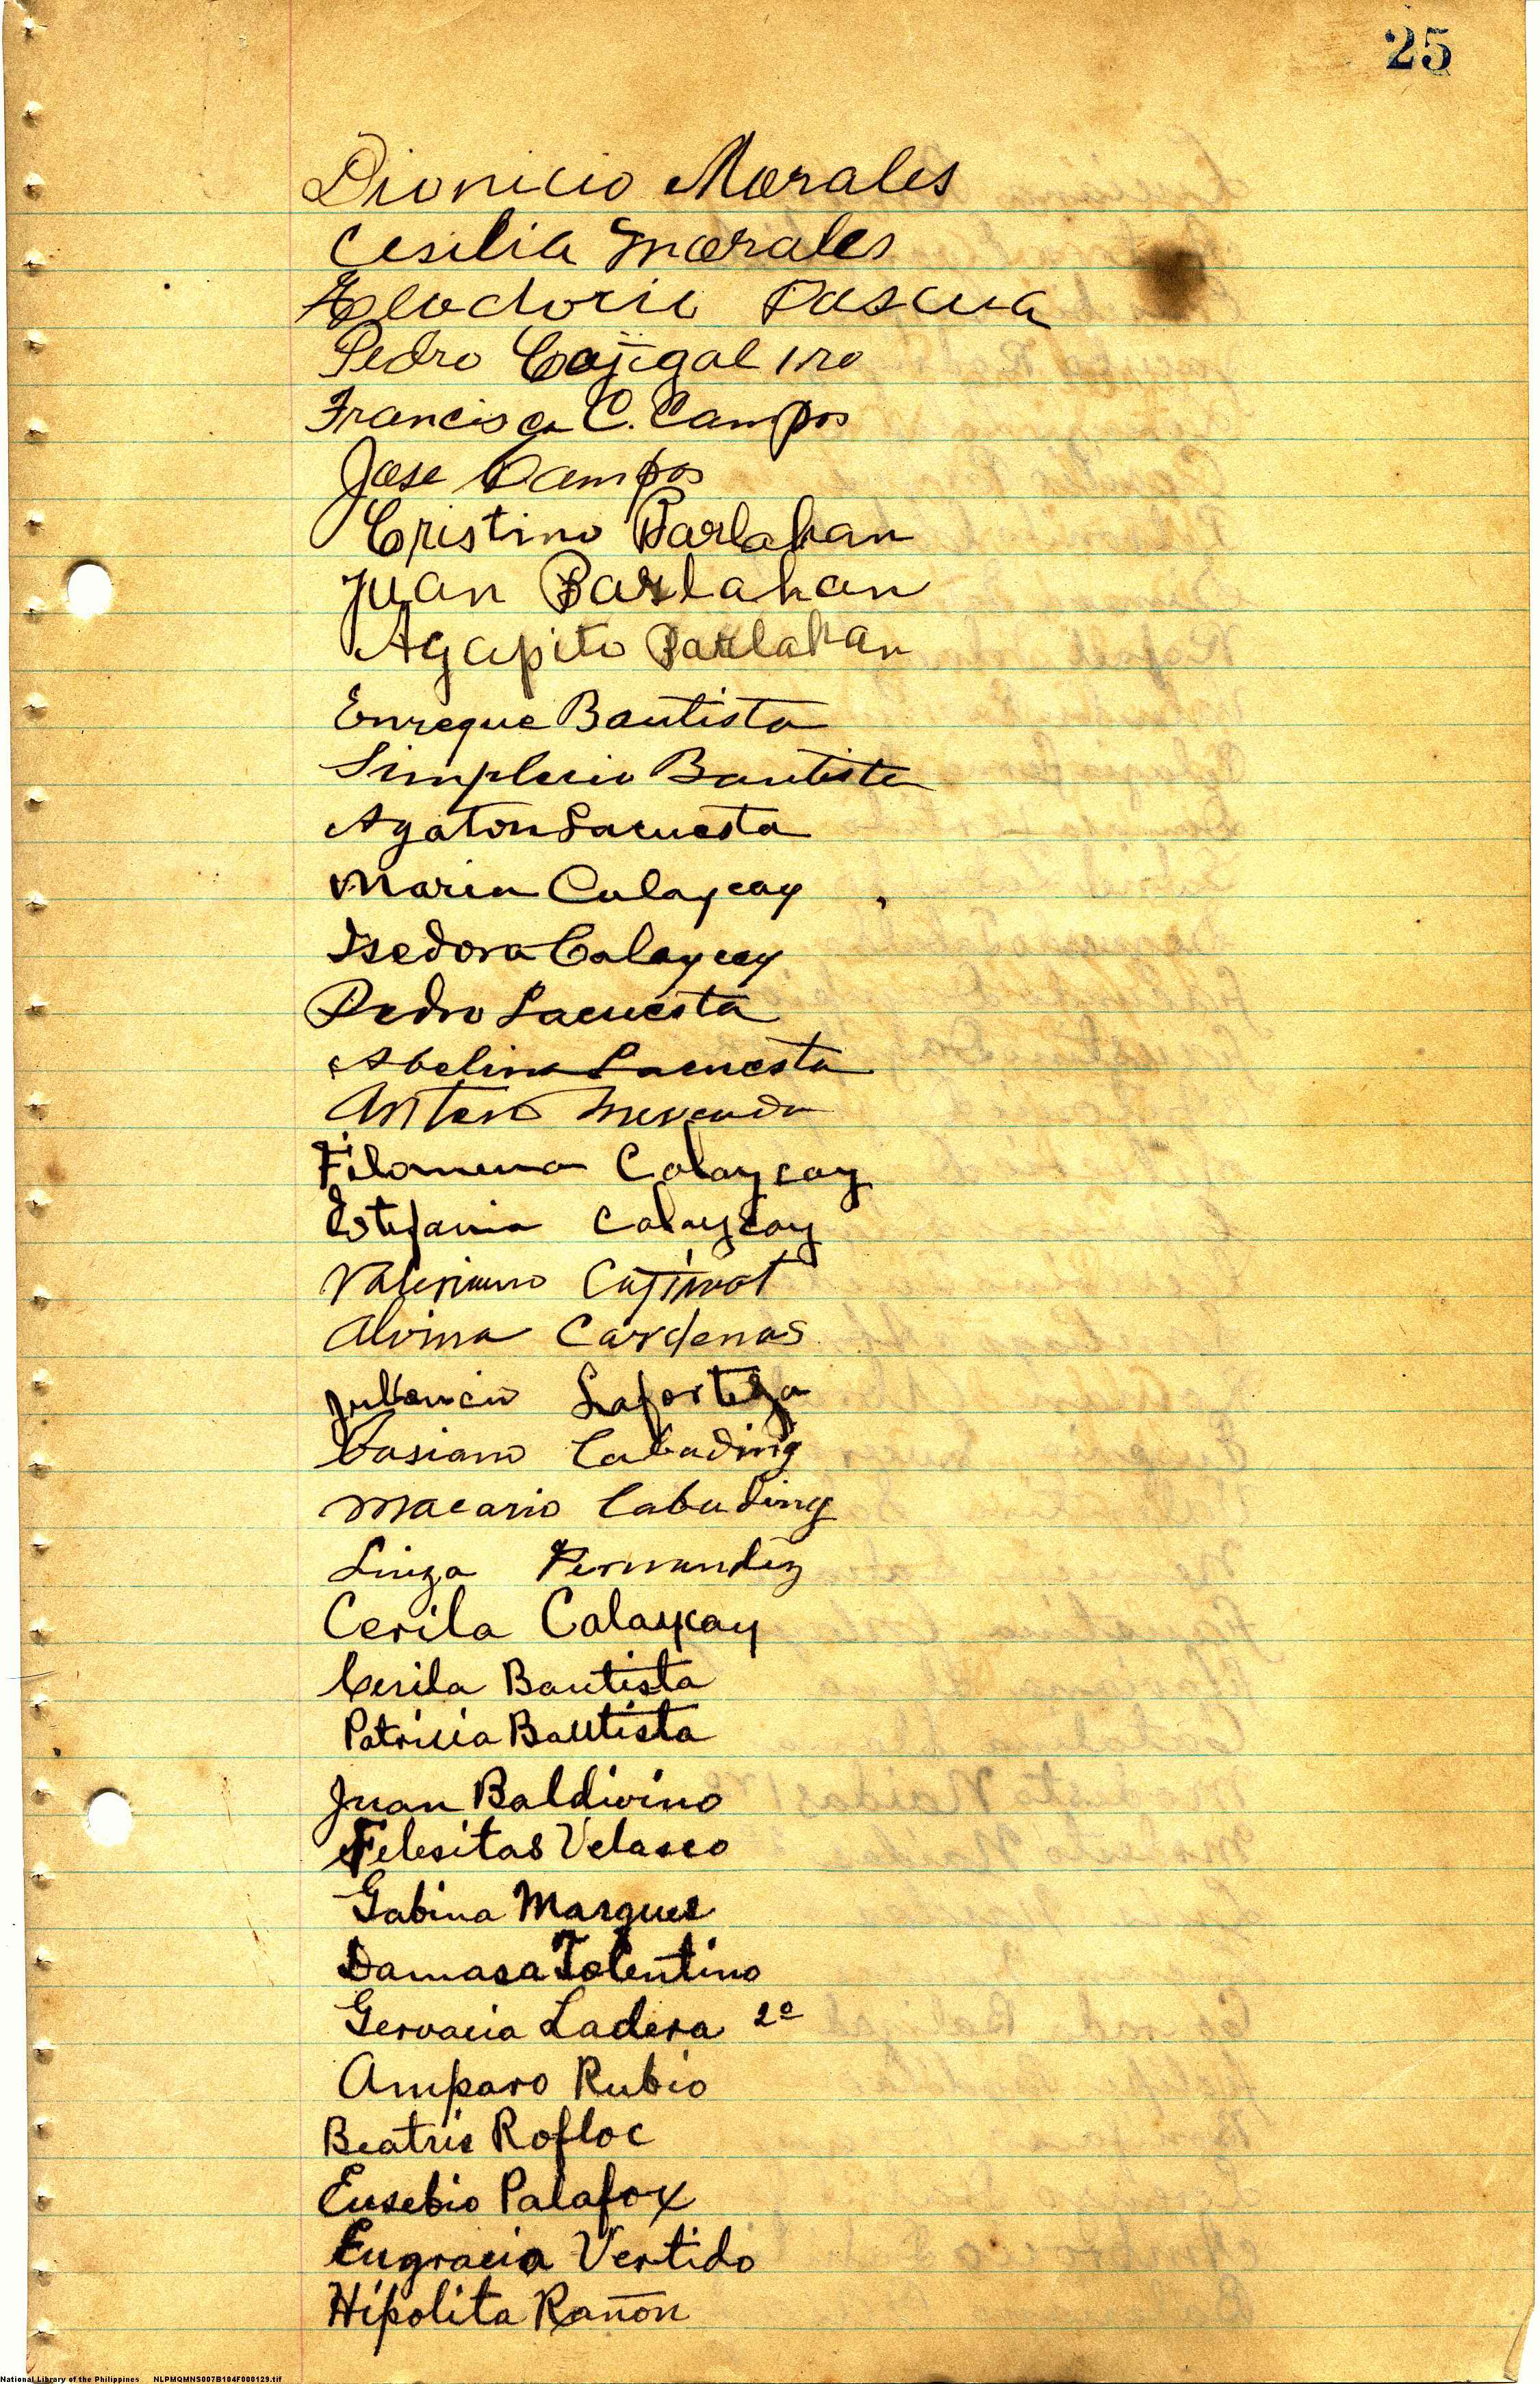 25
Dionicio Morales
Cesilia Morales
Pascua
Pedro Cajigal 1ro
Francisca C. Campos
Jose Campos
Cristino Barlahan
Juan Barlahan
Agapito Barlahan
Enreque Bautista
Simplicio Bautista
Agaton Lacuesta
Maria Calaycay
Isedora Calaycay
Pedro Lacuesta
Abelina Lacuesta
Filomena Calaycay
Estefania Calaycay
Valeriano
Alvina Cardenas
Laforteza
Casiano Cabading
Macario Cabading
Luiza Fernandez
Cerila Calaycay
Cerila Bautista
Patricia Bautista
Juan Baldivino
Felesitas Velasco
Gabina Marques
Damasa Tolentino
Gervacia Ladera 2a
Amparo Rubio
Beatris Rofloc
Eusebio Palafox
Eugracia Vertido
Hipolita Rañon
National Library of the Philippines NLPMQMNS007B104F000129.tif